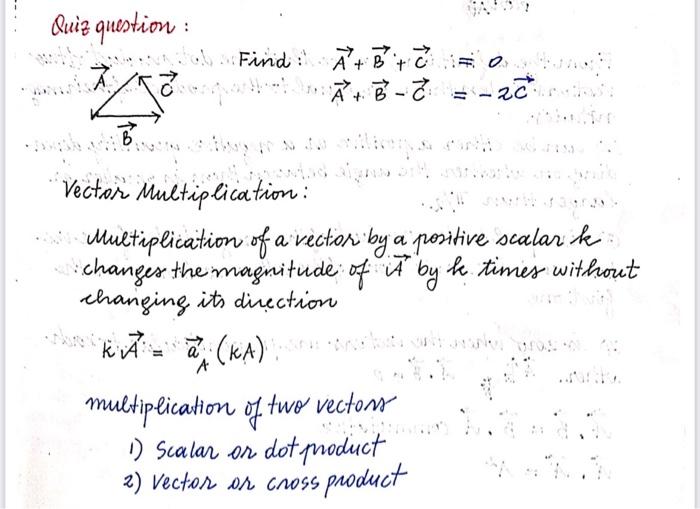 Quiz question :
Find : A⃗ + B⃗ + C⃗ = 0
A⃗ + B⃗ - C⃗ = -2C⃗
A⃗ C⃗
B⃗
Vector Multiplication :
Multiplication of a vector by a positive scalar k
changes the magnitude of A⃗ by k times without
changing its direction
k A⃗ = a⃗_A (kA)
multiplication of two vectors
1) Scalar or dot product
2) Vector or cross product